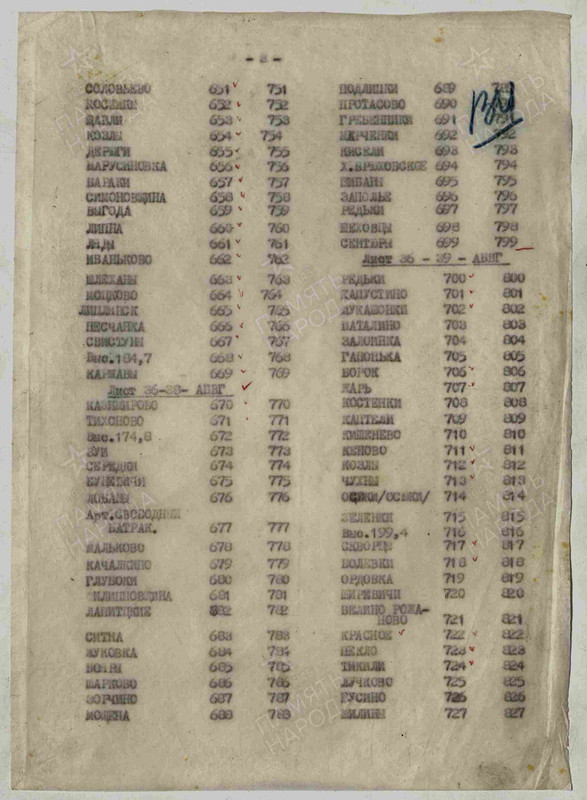 - 8 -
СОЛОВЬЕВО 651 751
КОСЫНКИ 652 752
ЦАПЛИ 653 753
КОЗЛЫ 654 754
ДЕРЯГИ 655 755
МАРУСИНОВКА 656 756
БАРАКИ 657 757
СИМОНОВЩИНА 658 758
ВЫГОДА 659 759
ЛИПНА 660 760
ЛЯДЫ 661 761
ИВАНЬКОВО 662 762
ШЛЕХАНЫ 663 763
664 764
665 765
ПЕСЧАНКА 666 766
СВИСТУНЫ 667 767
Выс.184,7 668 768
669 769
Лист 36-38- АБВГ
КАЗИМИРОВО 670 770
ТИХОНОВО 671 771
Выс.174,8 672 772
ЗУИ 673 773
СЕРЕДКИ 674 774
675 775
ЛОБАНЫ 676 776
Арт.СВОБОДНЫЙ
БАТРАК. 677 777
МАЛЬКОВО 678 778
КАЧАЛКИНО 679 779
ГЛУБОКИ 680 780
ФИЛИППОВЩИНА 681 781
682 782
СИТНА 683 783
ЖУКОВКА 684 784
685 785
ШАРКОВО 686 786
687 787
688 788
ПОДЛИПКИ 689 789
ПРОТАСОВО 690
ГРЕБЕННИКИ 691 791
692 792
КИСЕЛИ 693 793
694 794
695 795
ЗАПОЛЬЕ 696 796
РЕДЬКИ 697 797
ШЕХОВЦЫ 698 798
699 799
Лист 36 - 39 - АБВГ
РЕДЬКИ 700 800
КАПУСТИНО 701 801
ЛУКАШОНКИ 702 802
ВАТАЛИНО 703 803
704 804
ГАПОНЬКА 705 805
БОРОК 706 806
707 807
КОСТЕНКИ 708 808
709 809
КИШЕНЕВО 710 810
711 811
КОЗЛЫ 712 812
ЧУХНЫ 713 813
714 814
ЗЕЛЕНКИ 715 815
Выс.199,4 716 816
СКВОРЦЫ 717 817
БОЛЕВКИ 718 818
ОРДОВКА 719 819
720 820
ВЕЛИНО РОЖА-
НОВО 721 821
КРАСНОЕ 722 822
ПЕКЛО 723 823
724 824
ЛУЧКОВО 725 825
ГУСИНО 726 826
727 827
ПАМЯТЬ НАРОДА